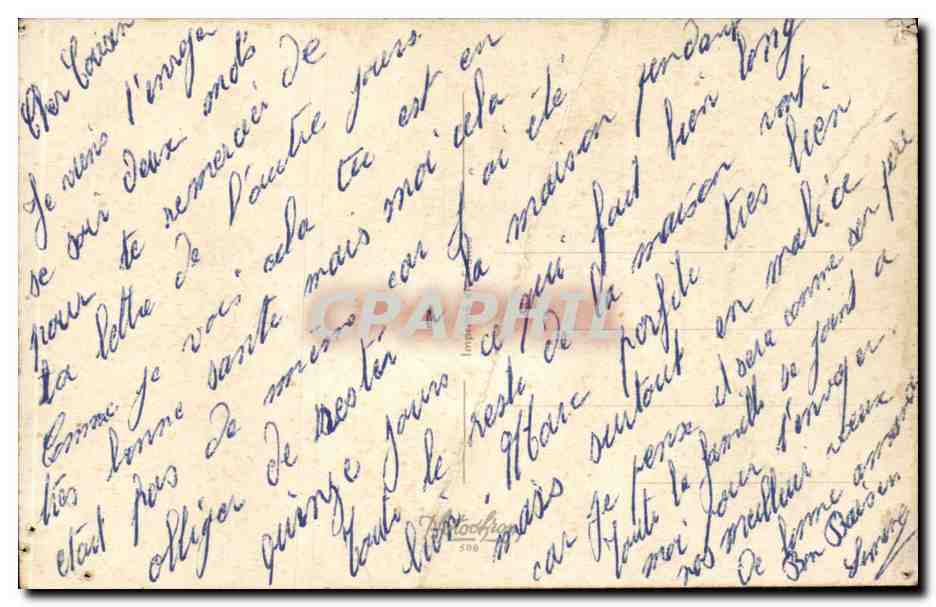 Cher Cousin
Je viens t'envoyer
se soir deux mots
pour te remercier de
la lettre de l'autre jours.
Comme je vois cela tu est en
très bonne santé mais moi cela
etait pas de meme car J ai été
obliger de rester a la maison pendant
quinze jours ce qui fait bien long
tout le reste de la maison vont
bien Marc porfite tres bien
mais surtout en malice
car Je pense il sera comme son père
toute la famille se joint a
moi pour t'envoyer
nos meilleur voeux
de bonne année
Bon Baiser
Simone
CRAPHIL
Photochrom
506